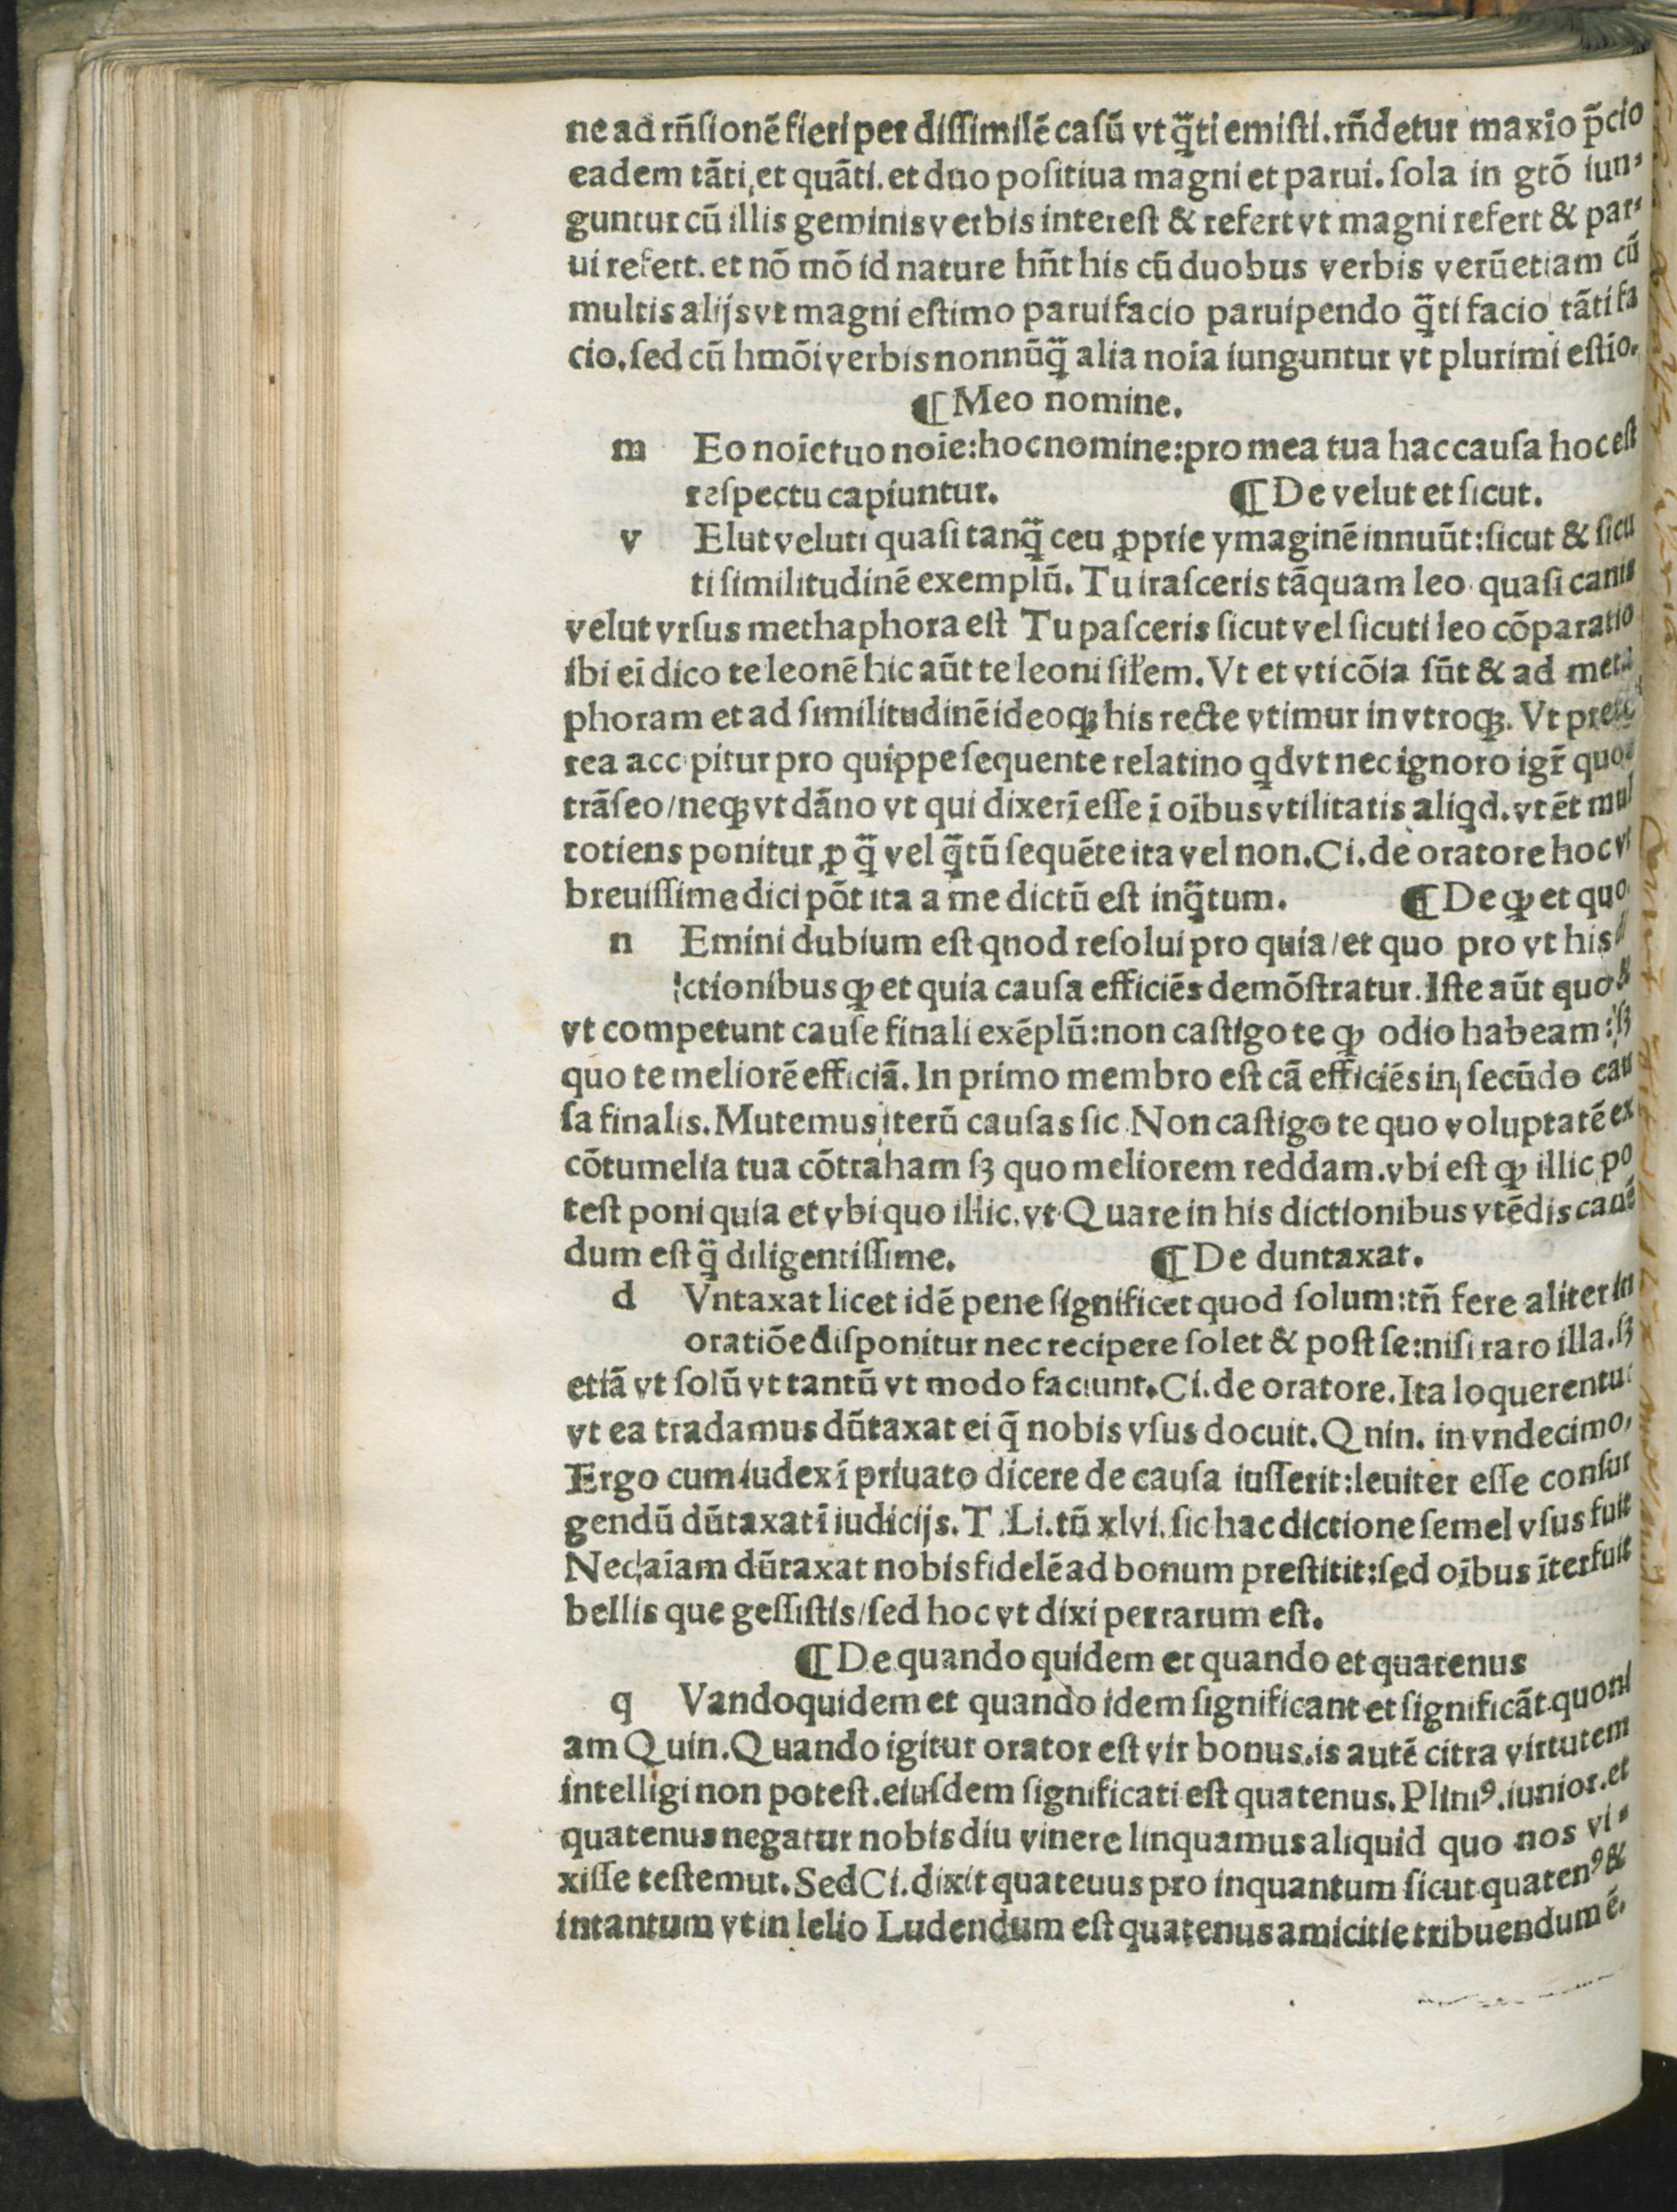 ne ad rñſionē fieri per diſſimilē caſū vt q̄ti emiſti. rñdetur maxīo p̄cio
eadem tāti, et quāti. et duo poſitiua magni et parui. ſola in gtō iun⸗
guntur cū illis geminis verbis intereſt & refert vt magni refert & par⸗
ui refert. et nō mō id nature hñt his cū duobus verbis verū etiam cū
multis alijs vt magni eſtimo parui facio paruipendo q̄ti facio tāti fa
cio. ſed cū hmōi verbis nonnūq̄ alia noīa iunguntur vt plurimi eſtīo.
¶ Meo nomine.
m Eo noīe tuo noīe: hoc nomine: pro mea tua hac cauſa hoc eſt
reſpectu capiuntur. ¶ De velut et ſicut.
v Elut veluti quaſi tanq̄ ceu ꝓprie ymaginē innuūt: ſicut & ſicu
ti ſimilitudinē exemplū. Tu iraſceris tāquam leo quaſi canis
velut vrſus methaphora eſt Tu paſceris ſicut vel ſicuti leo cōparatio
ibi eī dico te leonē hic aūt te leoni ſiłem. Vt et vti cōia ſūt & ad meta
phoram et ad ſimilitudinē ideoqꝫ his recte vtimur in vtroqꝫ. Vt prete
rea acc pitur pro quippe ſequente relatino qd vt nec ignoro igr̄ quos
trāſeo/neqꝫ vt dāno vt qui dixerī eſſe ī oībus vtilitatis aliqd. vt ēt mul
totiens ponitur ꝓ q̄ vel q̄tū ſequēte ita vel non. Ci. de oratore hoc vt
breuiſſime dici pōt ita a me dictū eſt inq̄tum. ¶ De ꝙ et quo
n Emini dubium eſt qnod reſolui pro quia/et quo pro vt his
ictionibus ꝙ et quia cauſa efficiēs demōſtratur. Iſte aūt quo &
vt competunt cauſe finali exēplū: non caſtigo te ꝙ odio habeam: ſꝫ
quo te meliorē efficiā. In primo membro eſt cā efficiēs in ſecūdo cau
ſa finalis. Mutemus iterū cauſas ſic Non caſtigo te quo voluptatē ex
cōtumelia tua cōtraham ſꝫ quo meliorem reddam. vbi eſt ꝙ illic po
teſt poni quia et vbi quo illic. vt Quare in his dictionibus vtēdis cauē
dum eſt q̄ diligentiſſime. ¶ De duntaxat.
d Vntaxat licet idē pene ſignificet quod ſolum: tñ fere aliter in
oratiōe diſponitur nec recipere ſolet & poſt ſe: niſi raro illa. ſꝫ
etiā vt ſolū vt tantū vt modo faciunt. Ci. de oratore. Ita loquerentur
vt ea tradamus dūtaxat ei q̄ nobis vſus docuit. Qnin. in vndecimo,
Ergo cum iudex ī priuato dicere de cauſa iuſſerit: leuiter eſſe conſur
gendū dūtaxat ī iudicijs. T. Li. tū xlvi. ſic hac dictione ſemel vſus fuit
Nec aīam dūtaxat nobis fidelē ad bonum preſtitit: ſed oībus īterfuit
bellis que geſſiſtis/ſed hoc vt dixi perrarum eſt.
¶ De quando quidem et quando et quatenus
q Vandoquidem et quando idem ſignificant et ſignificāt quoni
am Quin. Quando igitur orator eſt vir bonus. is autē citra virtutem
intelligi non poteſt. eiuſdem ſignificati eſt quatenus. Pliniꝰ. iunior. et
quatenus negatur nobis diu vinere linquamus aliquid quo nos vi⸗
xiſſe teſtemut. Sed Ci. dixit quateuus pro inquantum ſicut quatenꝰ &
intantum vt in lelio Ludendum eſt quatenus amicitie tribuendum ē.